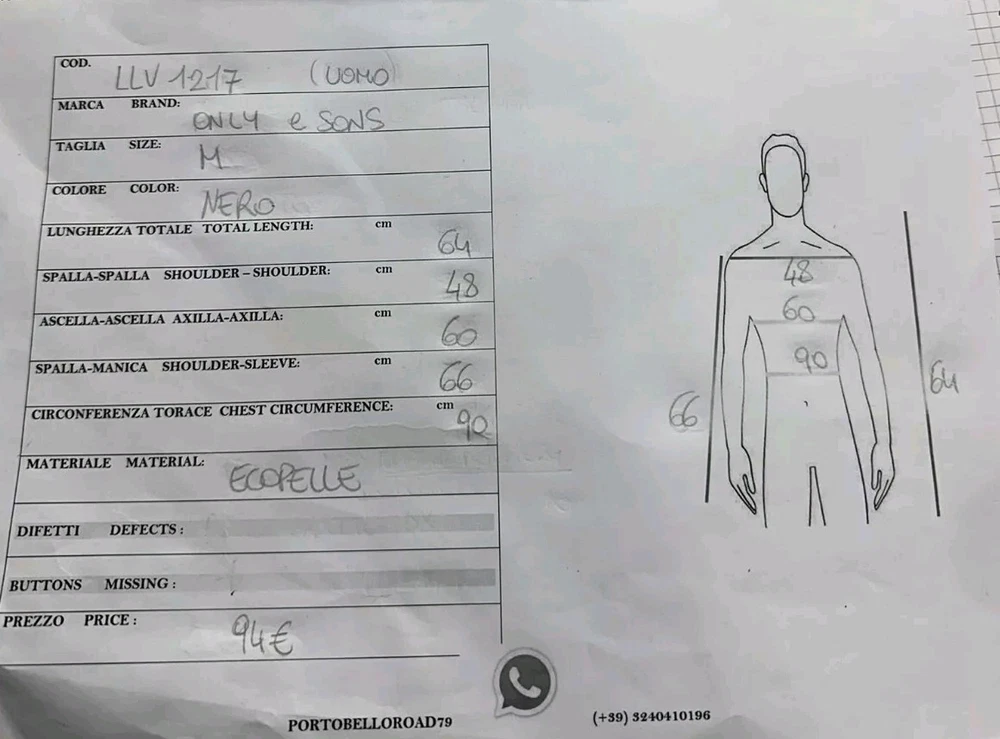 COD. LLV 1217 (UOMO)
MARCA BRAND: ONLY e SONS
TAGLIA SIZE: M
COLORE COLOR: NERO
LUNGHEZZA TOTALE TOTAL LENGTH: cm 64
SPALLA-SPALLA SHOULDER – SHOULDER: cm 48
ASCELLA-ASCELLA AXILLA-AXILLA: cm 60
SPALLA-MANICA SHOULDER-SLEEVE: cm 66
CIRCONFERENZA TORACE CHEST CIRCUMFERENCE: cm 90
MATERIALE MATERIAL: ECOPELLE
DIFETTI DEFECTS :
BUTTONS MISSING :
PREZZO PRICE : 94€
48
60
90
66
64
PORTOBELLOROAD79
(+39) 3240410196